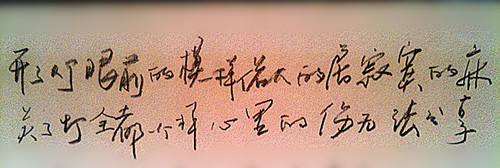 开了灯眼前的模样偌大的房寂寞的床
关了灯全都一个样心里的伤无法分享